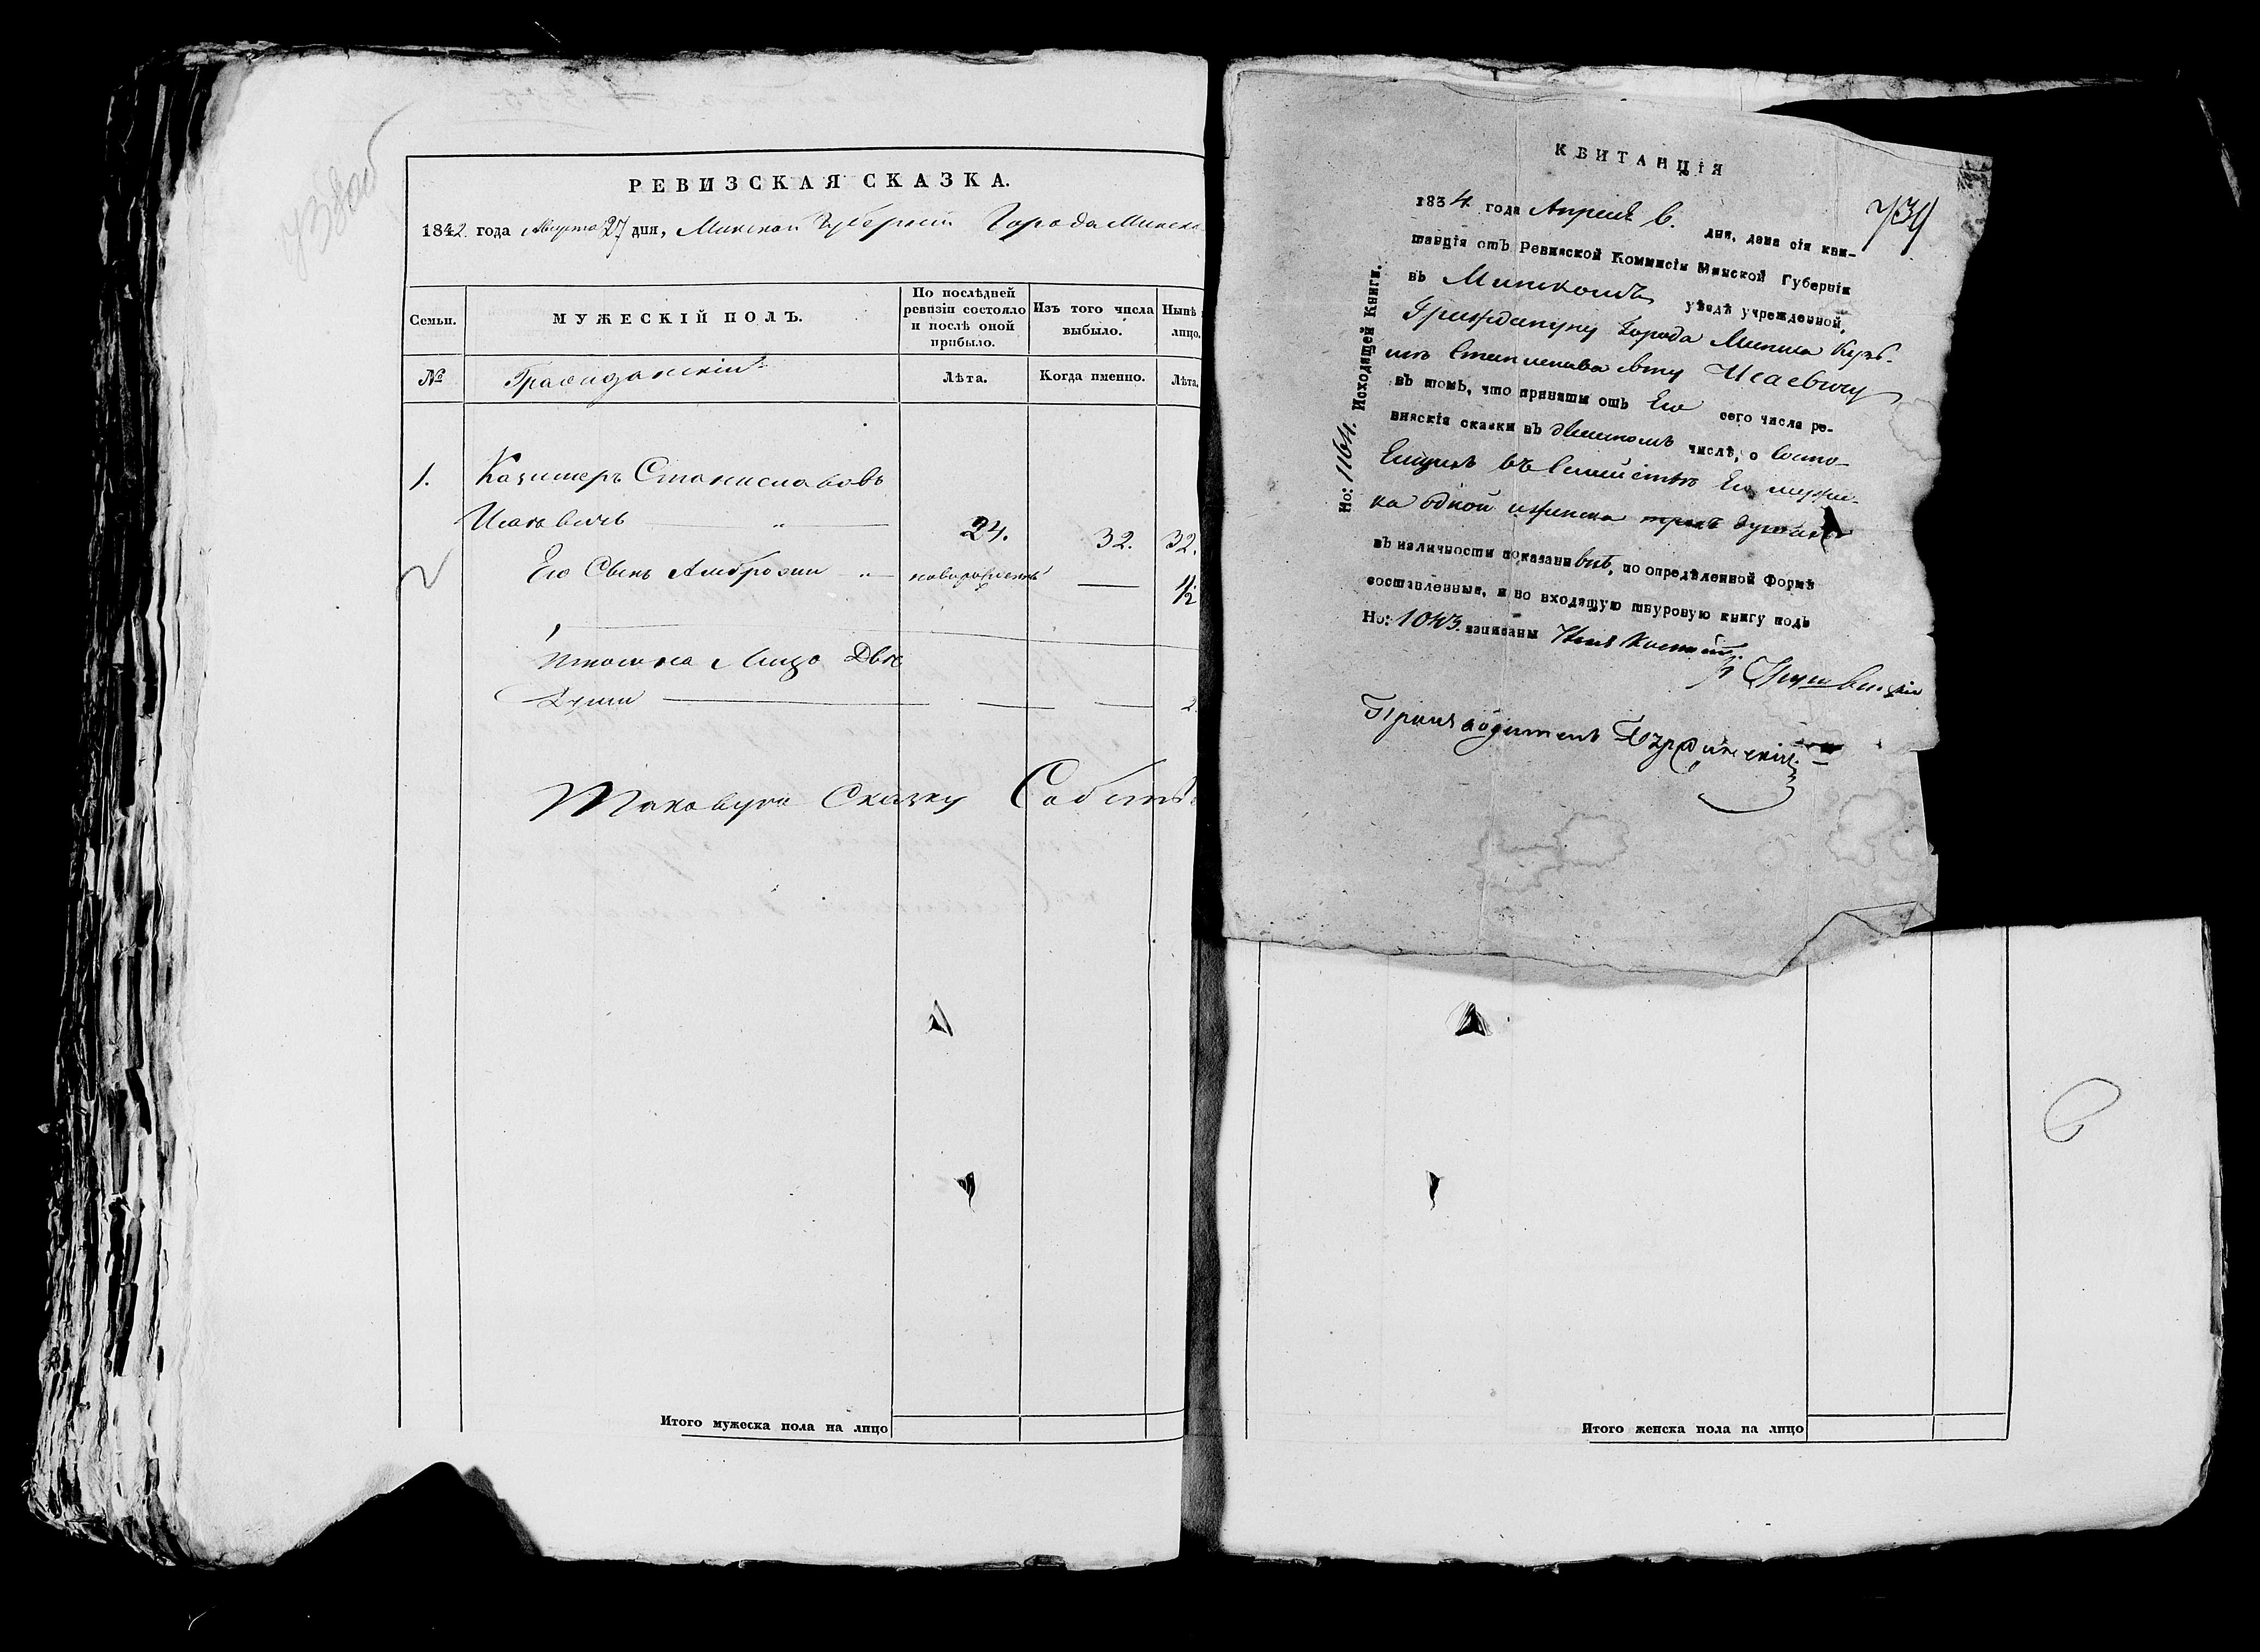 738об
РЕВИЗСКАЯ СКАЗКА.
1842 года Августа 27 дня, Минской Губернiи Города Минска
Семьи.
МУЖЕСКІЙ ПОЛЪ.
По послѣдней ревизіи состояло и послѣ оной прибыло.
Изъ того числа выбыло.
Нынѣ
лицо.
№
Гражданскій
Лѣта.
Когда именно.
Лѣта.
1. Казимеръ Станиславовъ
Исаевичъ 24. 32. 32.
Его Сынъ Амброзии новорожденъ 1/2
Итого на Лицо Двѣ
Души 2.
Таковую Сказку Собств
Итого мужеска пола на лицо
КВИТАНЦІЯ
739
1834 года Апреля 6. дня, дана сія кви-
танція отъ Ревизской Коммисіи Минской Губерніи
въ Минскомъ уѣздѣ учрежденной,
Гражданину Города Минска
Станиславову Исаевичу
въ томъ, что приняты отъ Его сего числа ре-
визскія сказки въ числѣ, о Состо-
Ещихъ въ Семействѣ Его мужес-
ка одной женска трехъ душахъ
въ наличности показаны, по опредѣленной Формѣ
составленныя, и во входящую шнуровую книгу подъ
Но: 1043 записаны
Производитель
Но: 1164. Исходящей Книги.
Итого женска пола на лицо